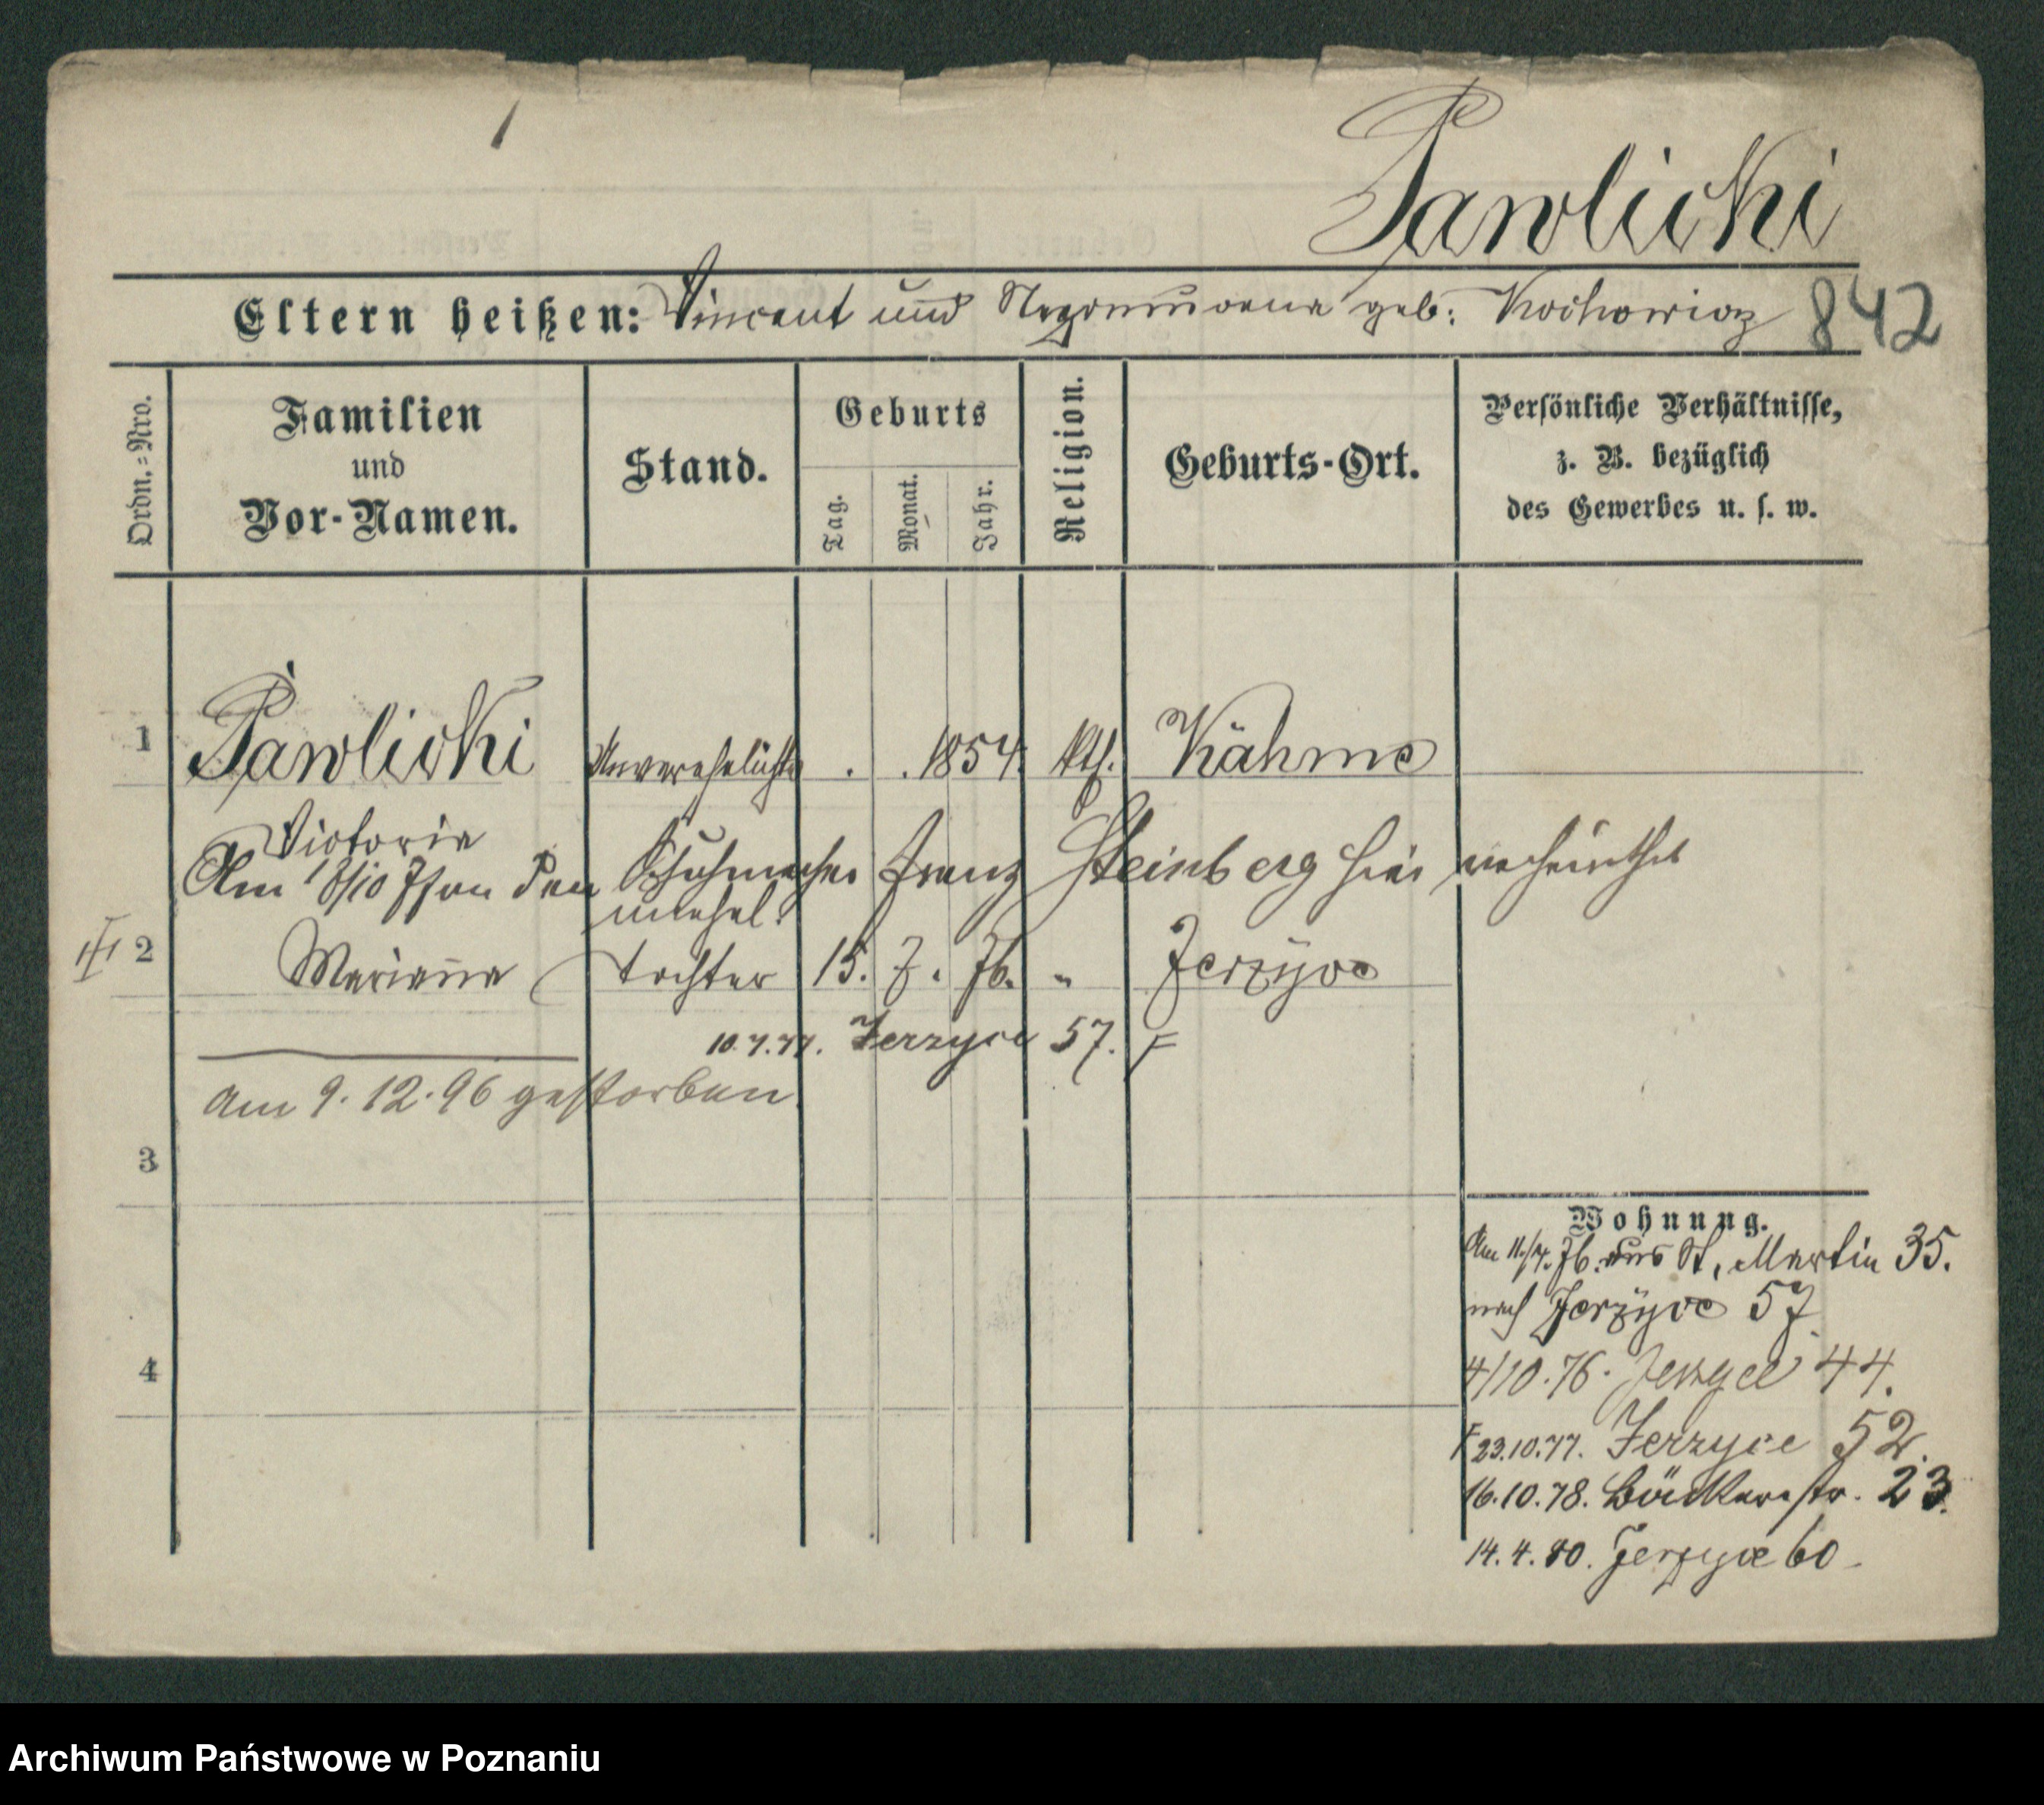 Pawlicki
Eltern heißen: Vincent und geb: Kochowicz 842
Ordn.=Nro.
Familien
und
Vor-Namen.
Stand.
Geburts
Tag.
Monat.
Jahr.
Religion.
Geburts-Ort.
Persönliche Verhältnisse,
z. B. bezüglich
des Gewerbes u. s. w.
1 Pawlicki Unverehelichte . . 1854. kth. Kähme
Victoria
Am 18/10 den Schuhmacher Franz Steinberg hier verheirathet
unehel.
2 Marianna Tochter 15. 7. 76. " Jerzyce
10.7.77. Jerzyce 57. F
am 9.12.96 gestorben
3
4
Wohnung.
Am 11./4. 76. aus St. Martin 35.
nach Jerzyce 57
4/10.76. Jerzyce 44.
F 23.10.77. Jerzyce 52.
16.10.78. Bäckerstr. 23.
14.4.80. Jerzyce 60
Archiwum Państwowe w Poznaniu